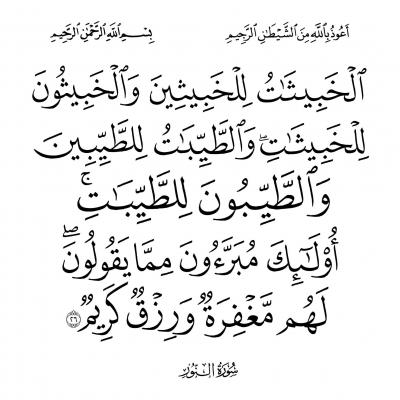 أَعُوذُ بِاللَّهِ مِنَ الشَّيْطَانِ الرَّجِيمِ بِسْمِ اللَّهِ الرَّحْمَٰنِ الرَّحِيمِ
ٱلْخَبِيثَٰتُ لِلْخَبِيثِينَ وَٱلْخَبِيثُونَ
لِلْخَبِيثَٰتِۖ وَٱلطَّيِّبَٰتُ لِلطَّيِّبِينَ
وَٱلطَّيِّبُونَ لِلطَّيِّبَٰتِۚ
أُو۟لَٰٓئِكَ مُبَرَّءُونَ مِمَّا يَقُولُونَۖ
لَهُم مَّغْفِرَةٌ وَرِزْقٌ كَرِيمٌ ٢٦
سُورَةُ النُّورِ